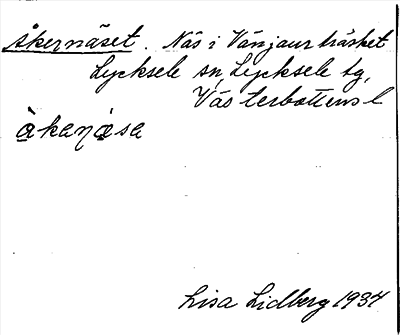 Åkernäset. Näs i Vänjaurträsket
Lycksele sn, Lycksele tg,
Västerbottens l
àkaṇạsa
Lisa Lidberg 1934